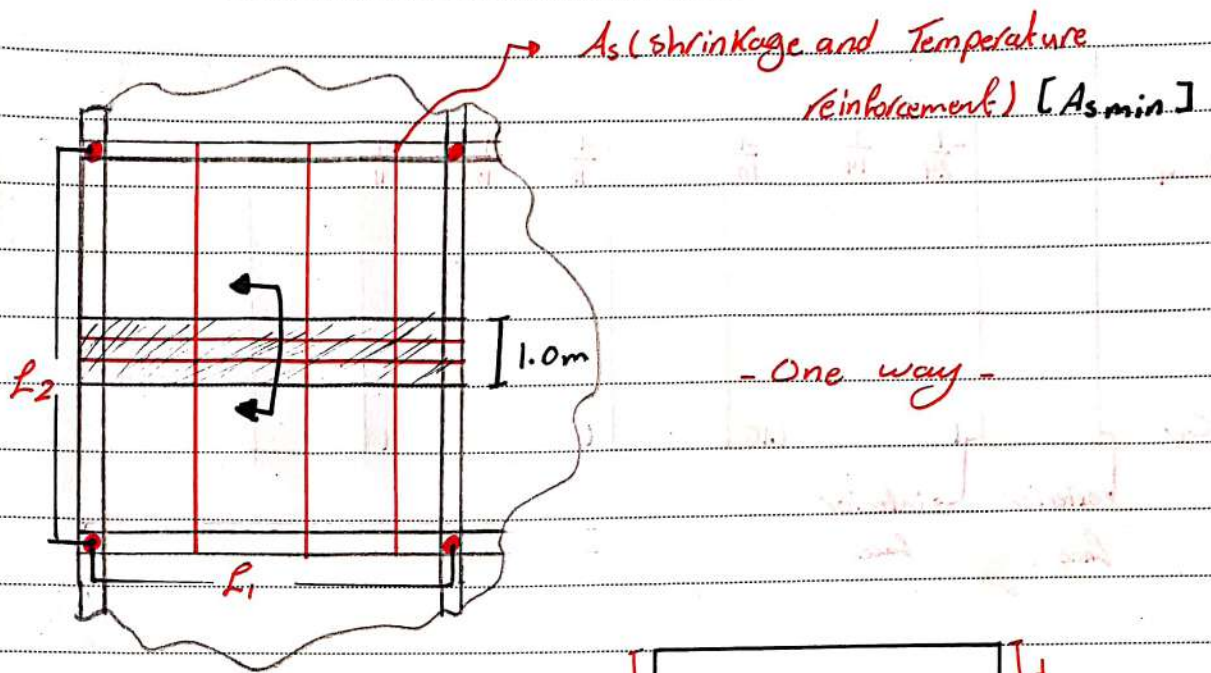 As (shrinkage and Temperature
reinforcement) [As min]
1.0m
L2
- One way -
L1
t